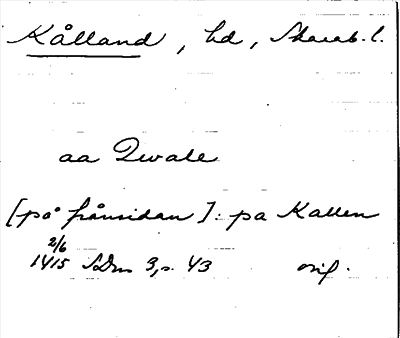 Kålland, hd, Skarab. l.
aa Qwale
[på frånsidan]: pa Kallen
2/6
1415 SDns 3, s. 43 orig.